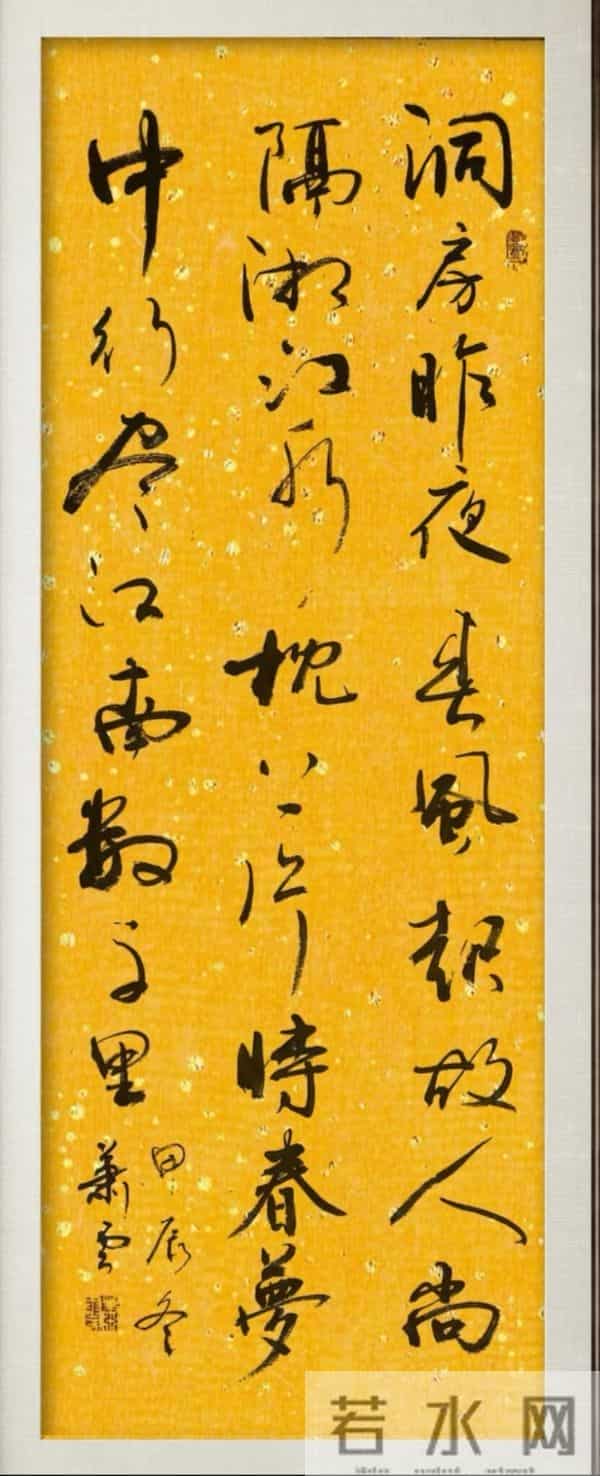 洞房昨夜春風起故人尚
隔湘江水枕上片時春夢
中行尽江南數千里
甲辰冬
蕭雲
若水网